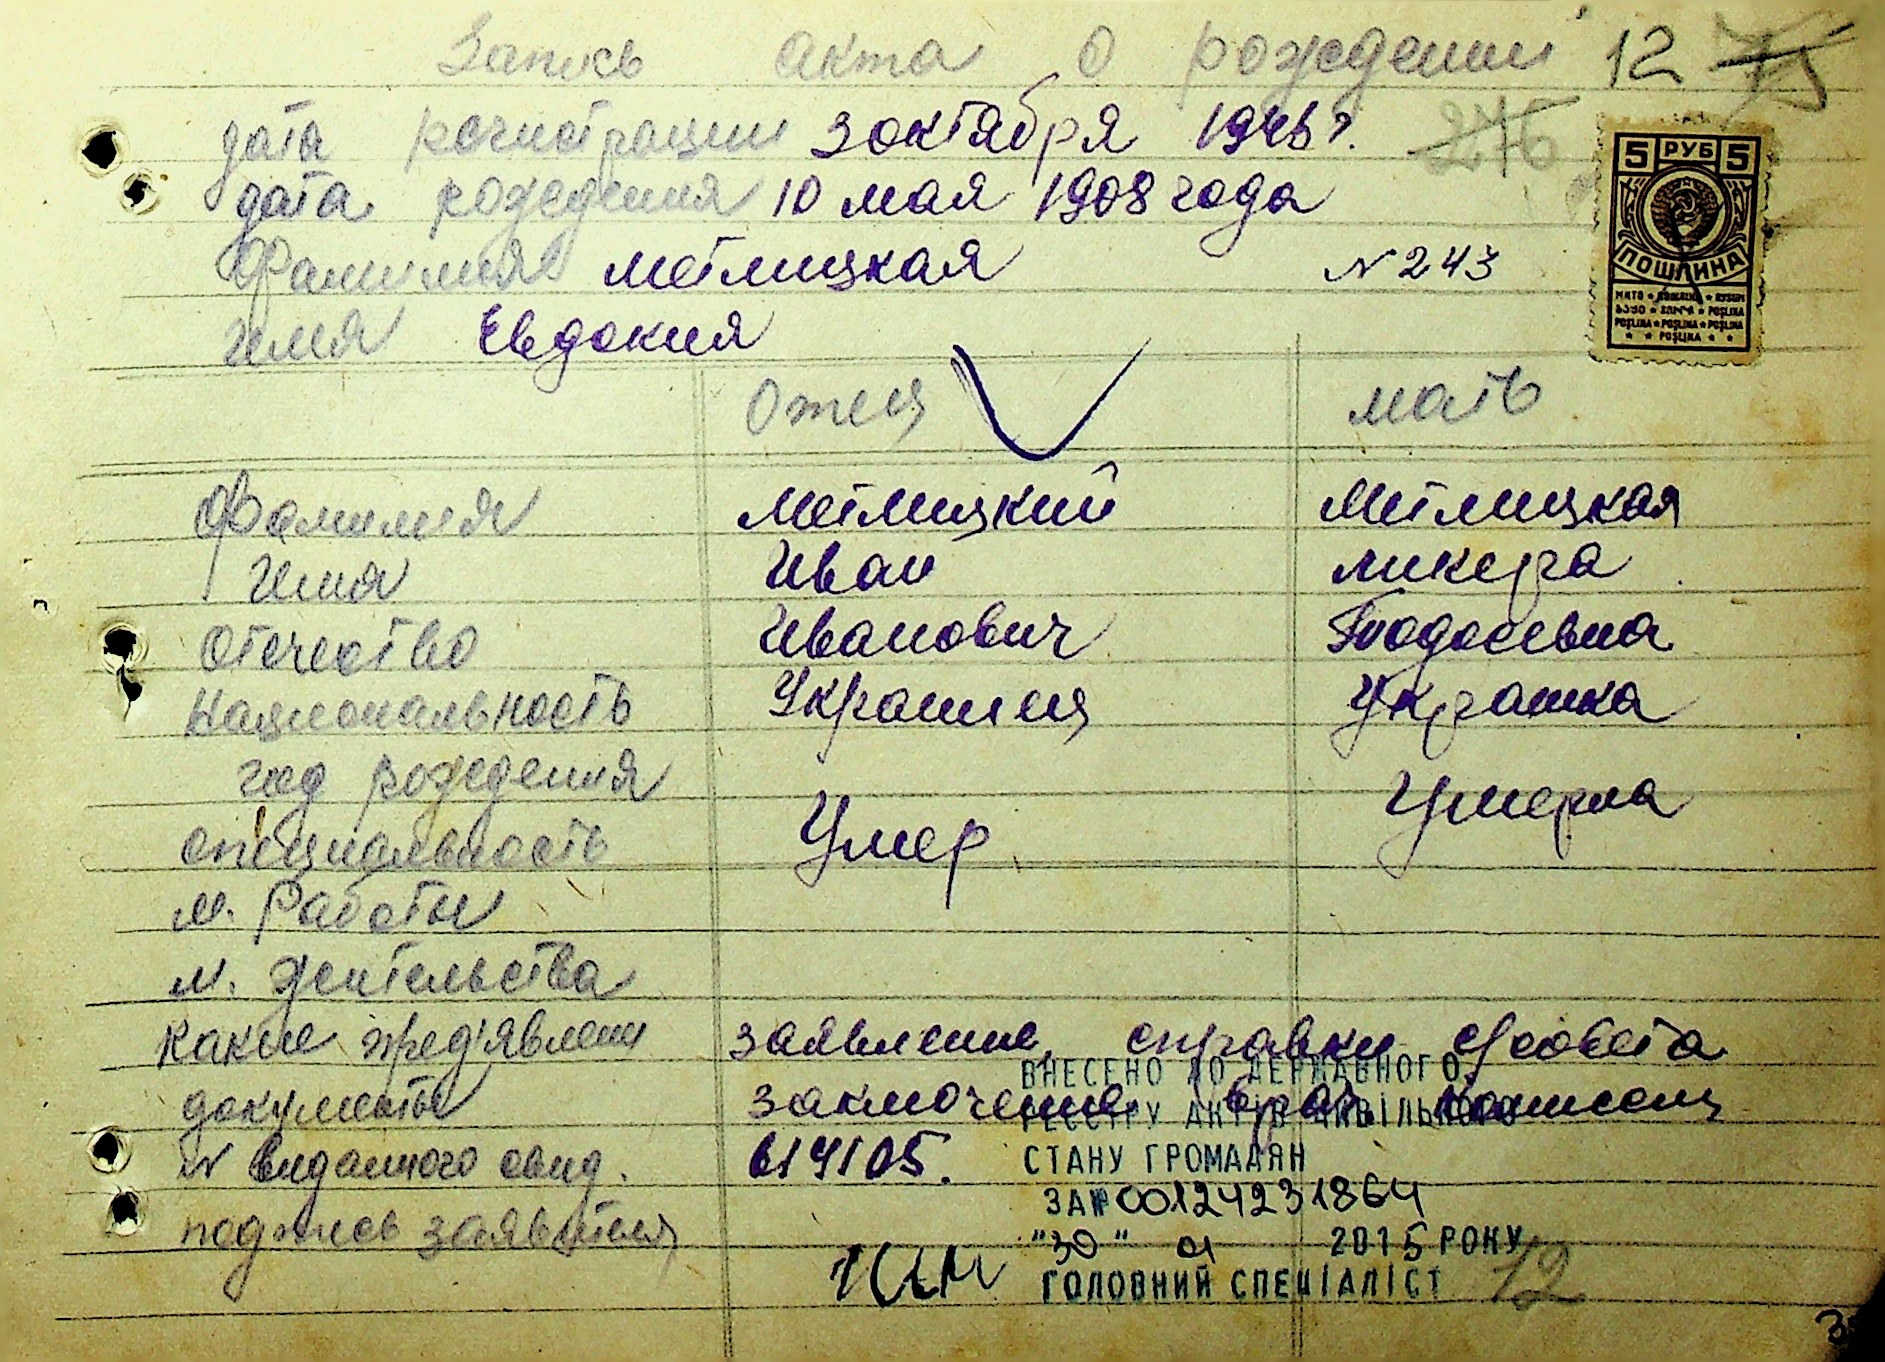 Запись акта о рождении 12 75
дата регистрации 3 октября 1946 г. 276
дата рождения 10 мая 1908 года
Фамилия Метлицкая N 243
Имя Евдокия
5 РУБ 5
ПОШЛИНА
POŞLINA
POŞLINA ★ POŞLINA ★ POŞLINA
★ ★ POŞLINA ★ ★
Отец мать
Фамилия Метлицкий Метлицкая
Имя Иван Ликера
Отчество Иванович Тиодосевна
Национальность Украинец Украинка
год рождения
Умер Умерла
специальность
м. Работы
м. жительства
какие пред'явлени заявление, справки с/совета
документы заключение врач. комисеии
N виданного свид. 614105.
подпись заявителя
ВНЕСЕНО ДО ДЕРЖАВНОГО
РЕЄСТРУ АКТІВ ЦИВІЛЬНОГО
СТАНУ ГРОМАДЯН
ЗА № 00124231864
"30" 01 2015 РОКУ
ГОЛОВНИЙ СПЕЦІАЛІСТ 12